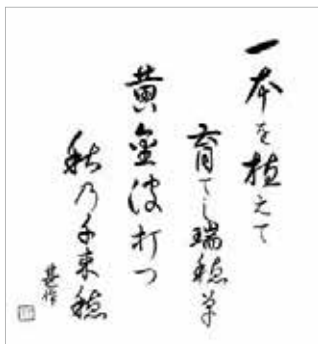 一本を植えて
育てし瑞穂草
黄金波打つ
秋乃千束穂